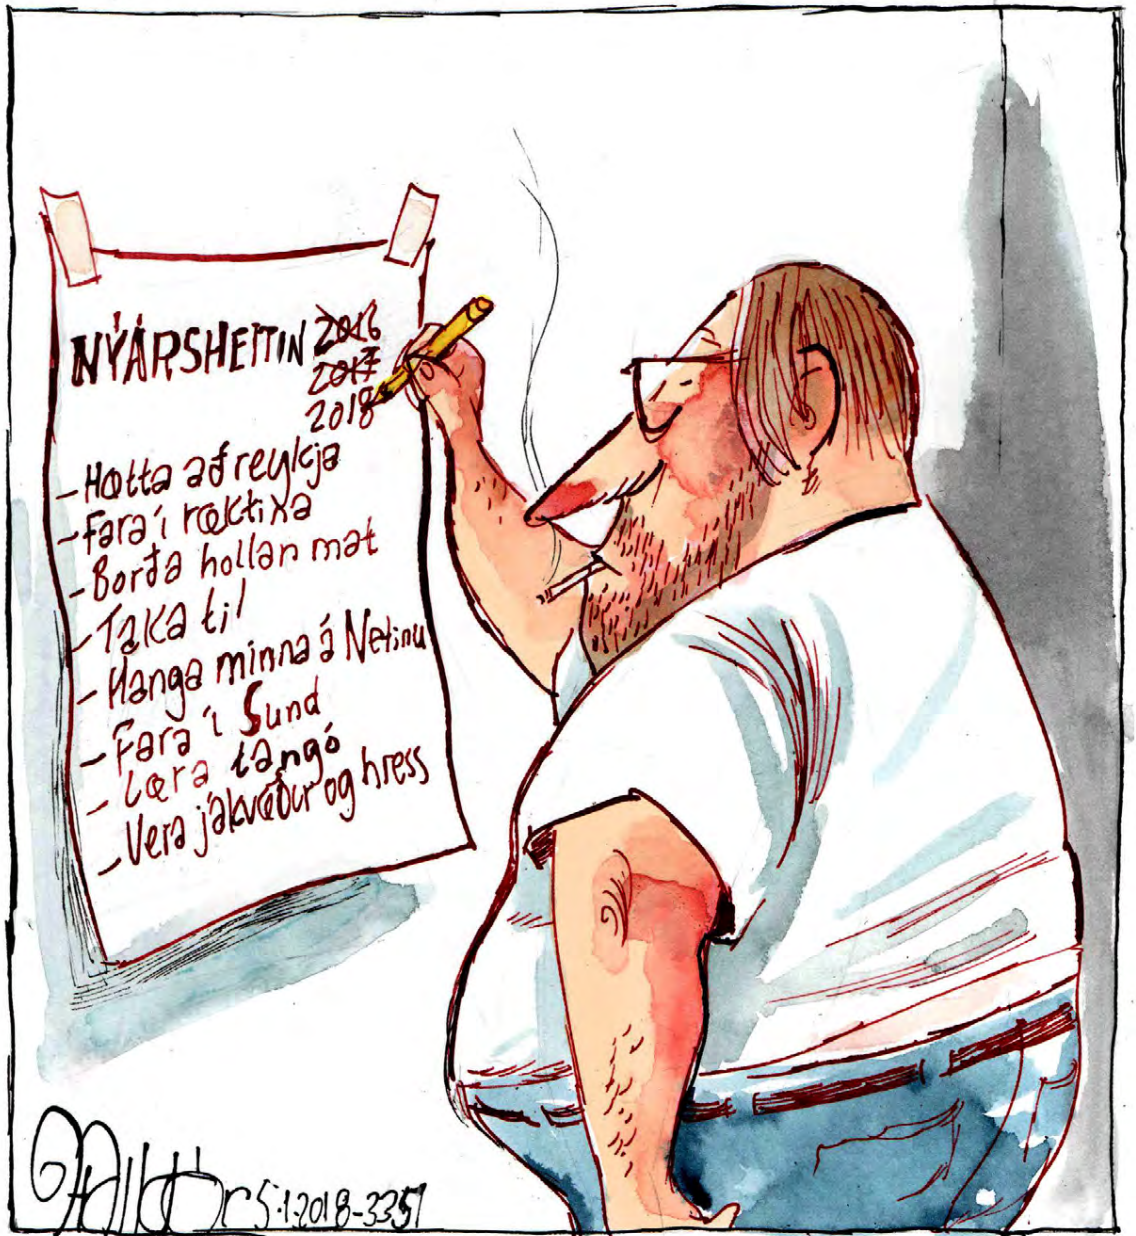 NÝÁRSHEITIN 2016
2017
2018
- Hætta að reykja
- Fara í ræktina
- Borða hollan mat
- Taka til
- Hanga minna á Netinu
- Fara í Sund
- Læra tangó
- Vera jákvæður og hress
5.1.2018-3351